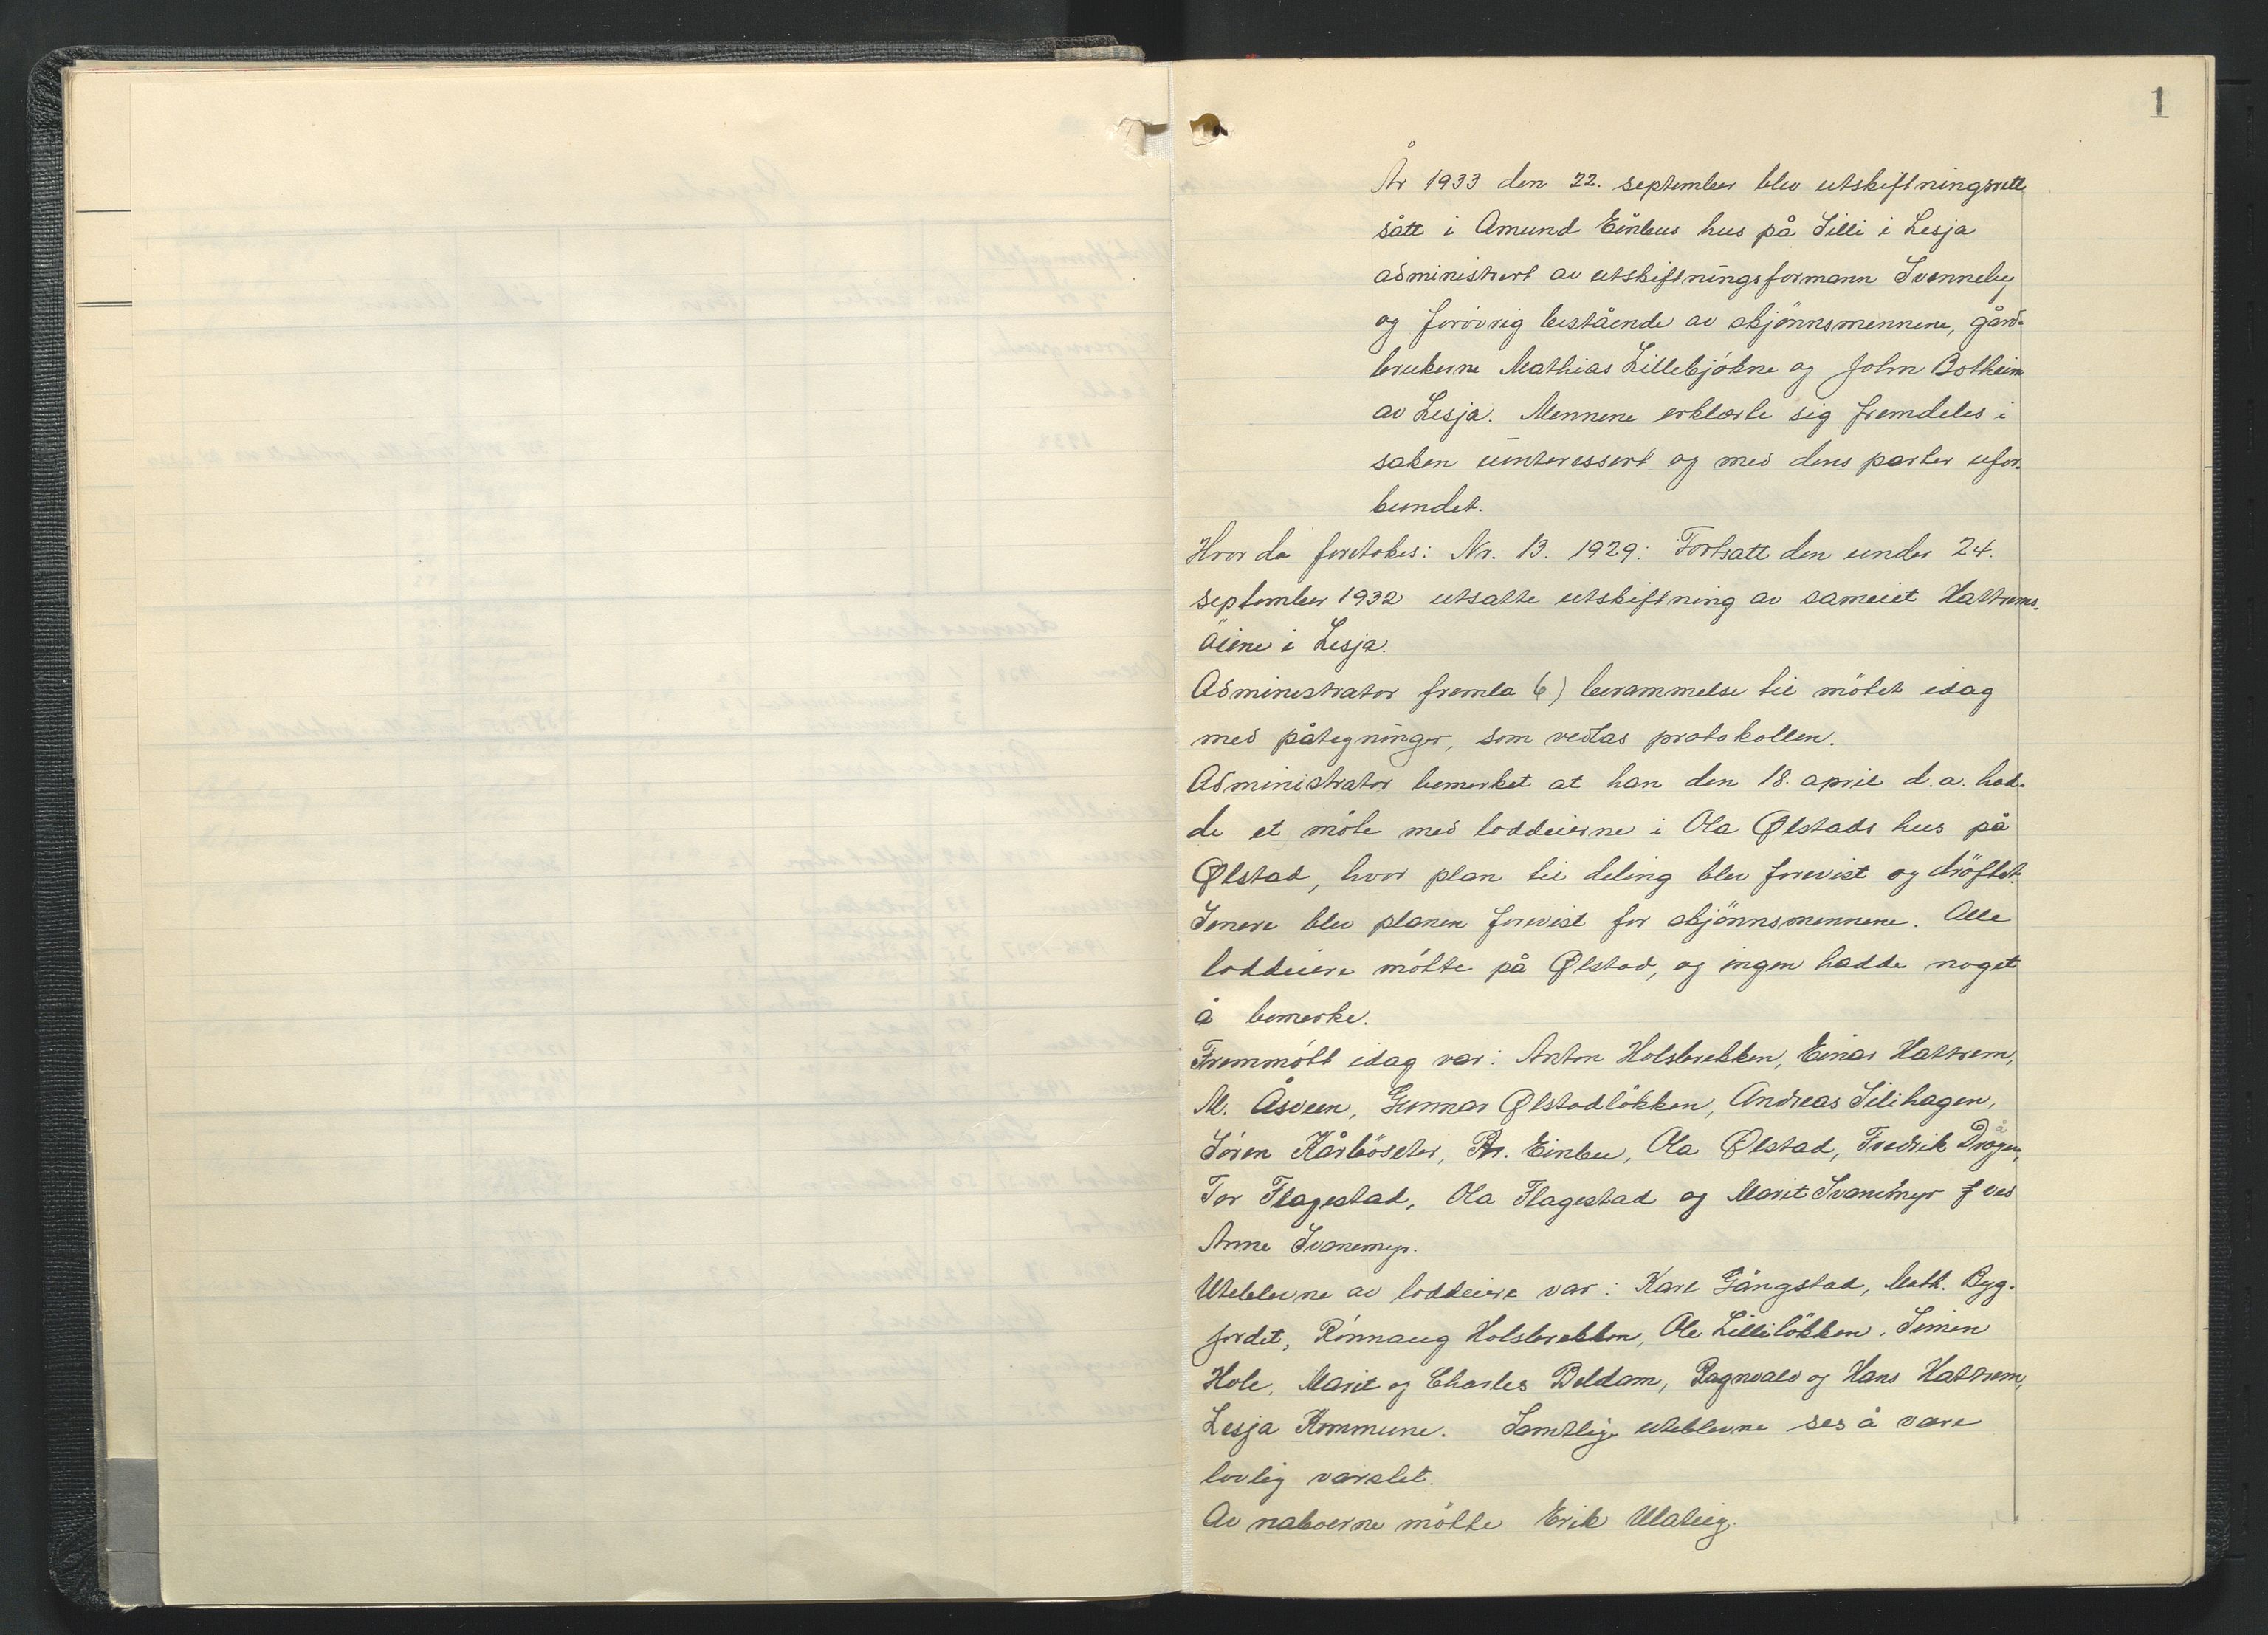 1
År 1933 den 22. september blev utskiftningsrett
sått i Amund Einbus hus på Silli i Lesja
administrert av utskiftningsformann Svenneby
og forövrig bestående av skjönnsmennene, gård-
brukerne Mathias Lillebjökne og John Botheim
av Lesja. Mennene erklærte sig fremdeles i
saken uinteressert og med dens parter ufor-
bundet.
Hvor da foretokes: Nr. 13. 1929: Fortsatt den under 24.
september 1932 utsatte utskiftning av sameiet Hattrems-
öiene i Lesja.
Administrator fremla 6) berammelse til mötet idag
med påtegninger, som vedtas protokollen.
Administrator bemerket at han den 18. april d.a. had-
de et möte med loddeierne i Ola Ølstads hus på
Ølstad, hvor plan til deling blev forevist og dröftet.
Senere blev planen forevist for skjönnsmennene. Alle
loddeiere mötte på Ølstad, og ingen hadde noget
å bemerke.
Fremmött idag var: Anton Holsbrekken, Einar Hattrem,
M. Åsveen, Gunnar Ølstadlökken, Andreas Silihagen,
Sören Kårböseter, Einbu, Ola Ølstad, Fredrik Drågen,
Tor Flagestad, Ola Flagestad og Marit Svanemyr ved
Anne Svanemyr.
Uteblevne av loddeiere var: Kari Gångstad, Math. Byg-
fordet, Rönnaug Holsbrekken, Ole Lillelökken, Simen
Hole, Marit og Charles Beldam, Ragnvald og Hans Hattrem,
Lesja Kommune. Samtlige uteblevne ses å være
lovlig varslet.
Av naboerne mötte Erik Ulateig.